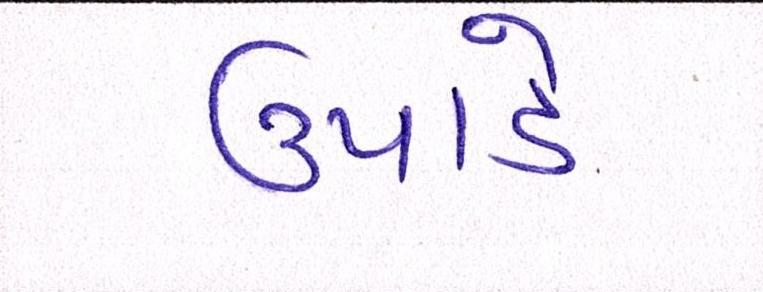 ઉપાડે